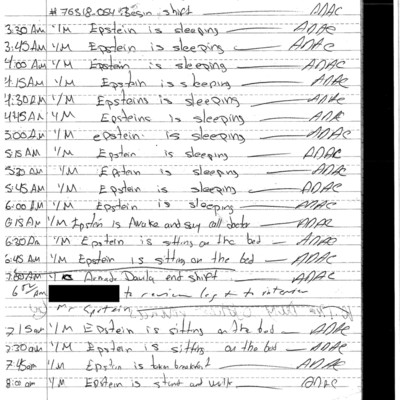 #76318-054 Begin shift ADAC
3:30 AM I/M Epstein is sleeping ADAC
3:45 AM I/M Epstein is sleeping ADAC
4:00 AM I/M Epstein is sleeping ADAC
4:15 AM I/M Epstein is sleeping ADAC
4:30 AM I/M Epstein is sleeping ADAC
4:45 AM I/M Epstein is sleeping ADAC
5:00 AM I/M epstein is sleeping ADAC
5:15 AM I/M Epstein is sleeping ADAC
5:30 AM I/M Epstein is sleeping ADAC
5:45 AM I/M Epstein is sleeping ADAC
6:00 AM I/M Epstein is sleeping ADAC
6:15 AM I/M Epstein is Awake and say call doctor ADAC
6:30 AM I/M Epstein is sitting on the bed ADAC
6:45 AM I/M Epstein is sitting on the bed ADAC
7:00 AM Davila end shift ADAC
AM to review log + to interview
Mr Epstein
7:15 AM I/M Epstein is sitting on the bed ADAC
7:30 AM I/M Epstein is sitting on the bed ADAC
7:45 AM I/M Epstein is ADAC
8:00 AM I/M Epstein is and walk ADAC